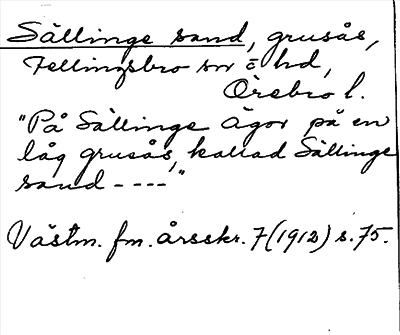 Sällinge sand, grusås,
Fellingsbro sn o hd,
Örebro l.
"På Sällinge ägor på en
låg grusås, kallad Sällinge
sand ----"
Västm. fm. årsskr. 7 (1912) s. 75.